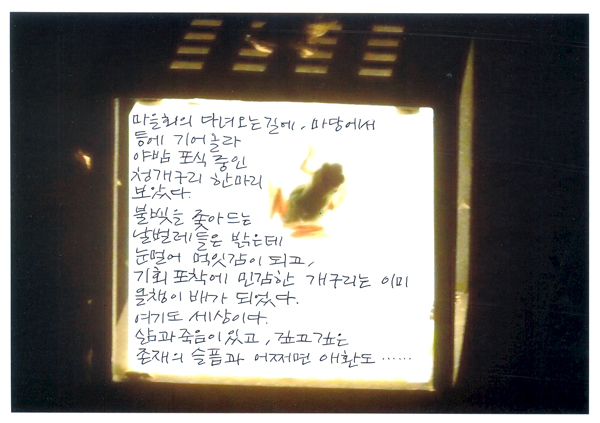 마을회의 다녀오는길에, 마당에서
등에 기어올라
야밤 포식 중인
청개구리 한마리
보았다.
불빛을 좇아드는
날벌레들은 밝은데
눈멀어 먹잇감이 되고,
기회 포착에 민감한 개구리는 이미
올챙이 배가 되었다.
여기도 세상이다.
삶과죽음이있고, 깊고깊은
존재의 슬픔과 어쩌면 애환도 ……